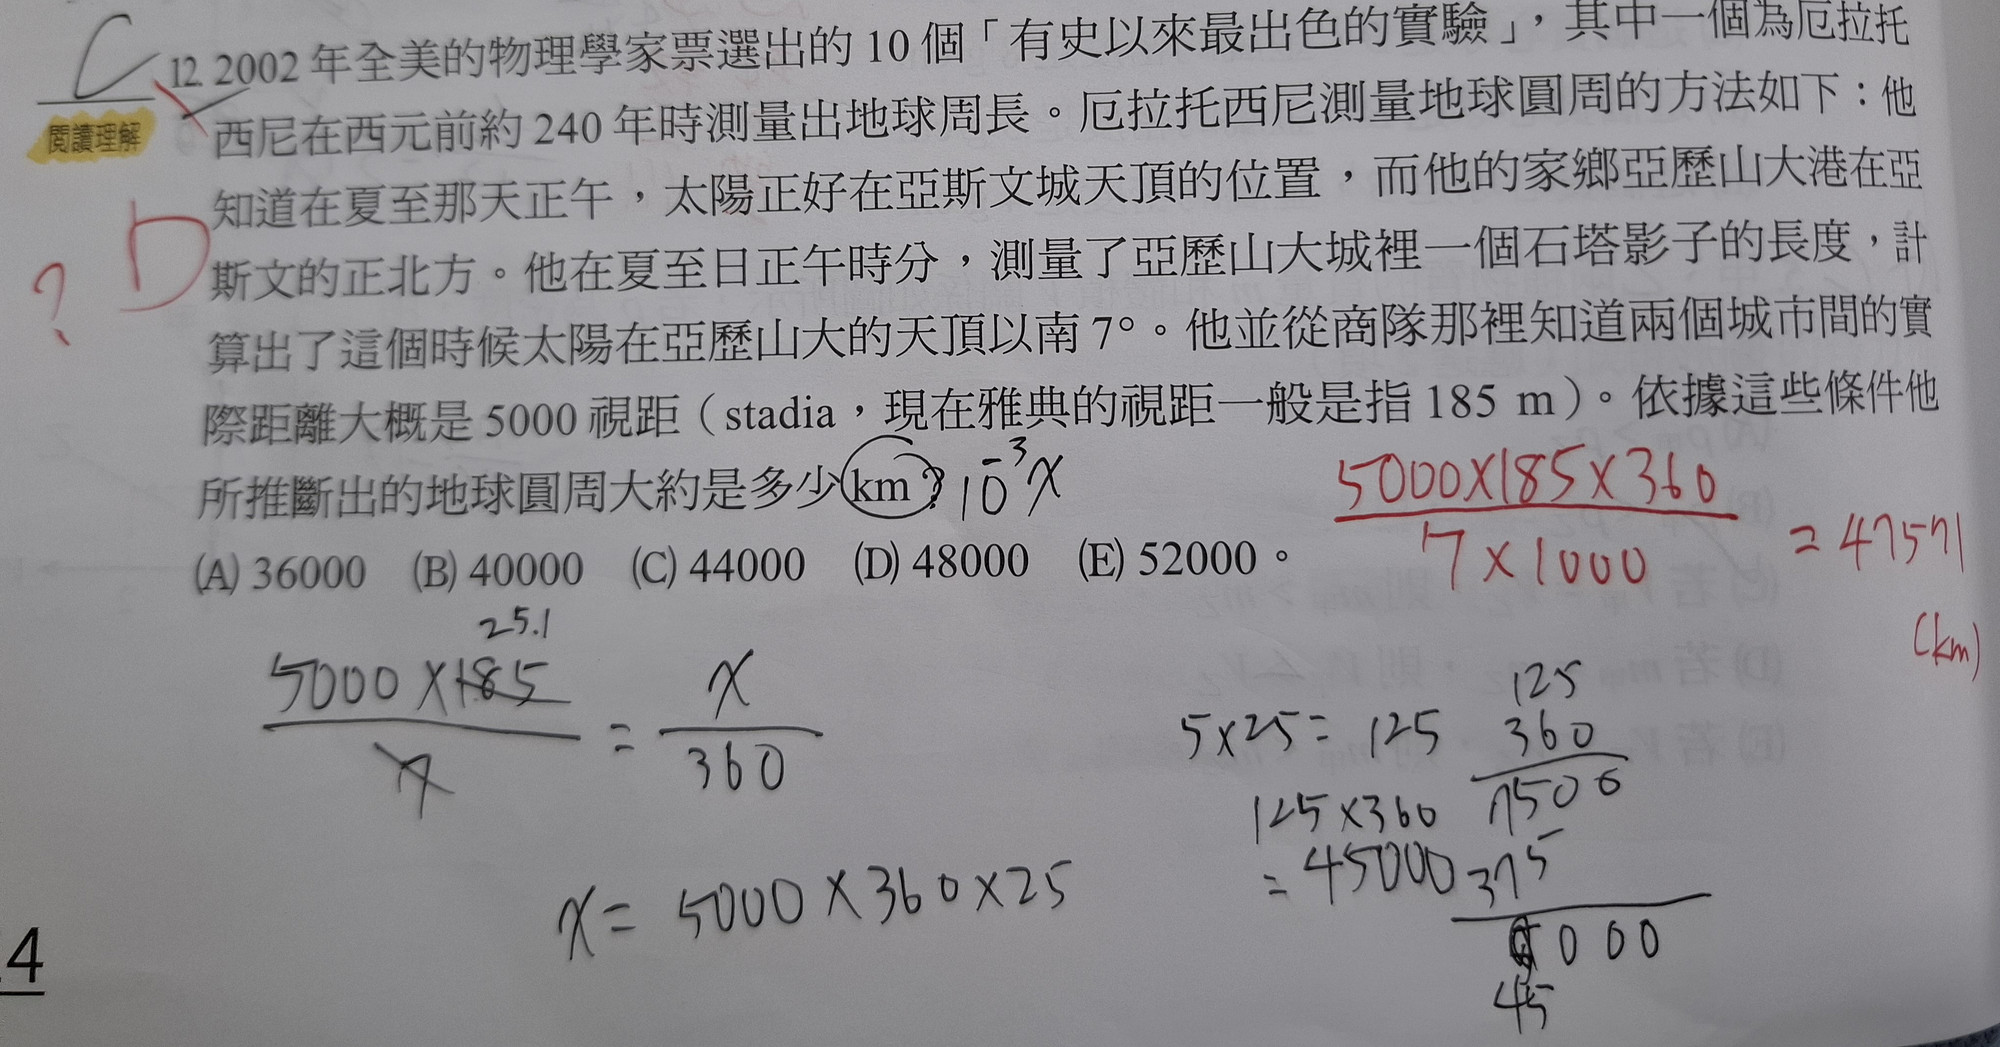 C
12. 2002 年全美的物理學家票選出的 10 個「有史以來最出色的實驗」,其中一個為厄拉托
閱讀理解
西尼在西元前約 240 年時測量出地球周長。厄拉托西尼測量地球圓周的方法如下:他
知道在夏至那天正午,太陽正好在亞斯文城天頂的位置,而他的家鄉亞歷山大港在亞
? D
斯文的正北方。他在夏至日正午時分,測量了亞歷山大城裡一個石塔影子的長度,計
算出了這個時候太陽在亞歷山大的天頂以南 7°。他並從商隊那裡知道兩個城市間的實
際距離大概是 5000 視距(stadia,現在雅典的視距一般是指 185 m)。依據這些條件他
所推斷出的地球圓周大約是多少 km? 10⁻³x
(A) 36000 (B) 40000 (C) 44000 (D) 48000 (E) 52000。
5000×185×360
7×1000
= 47571
(km)
25.1
5000×185
7
=
x
360
x = 5000×360×25
5×25= 125
125×360
= 45000
125
360
7500
375
000
45
4